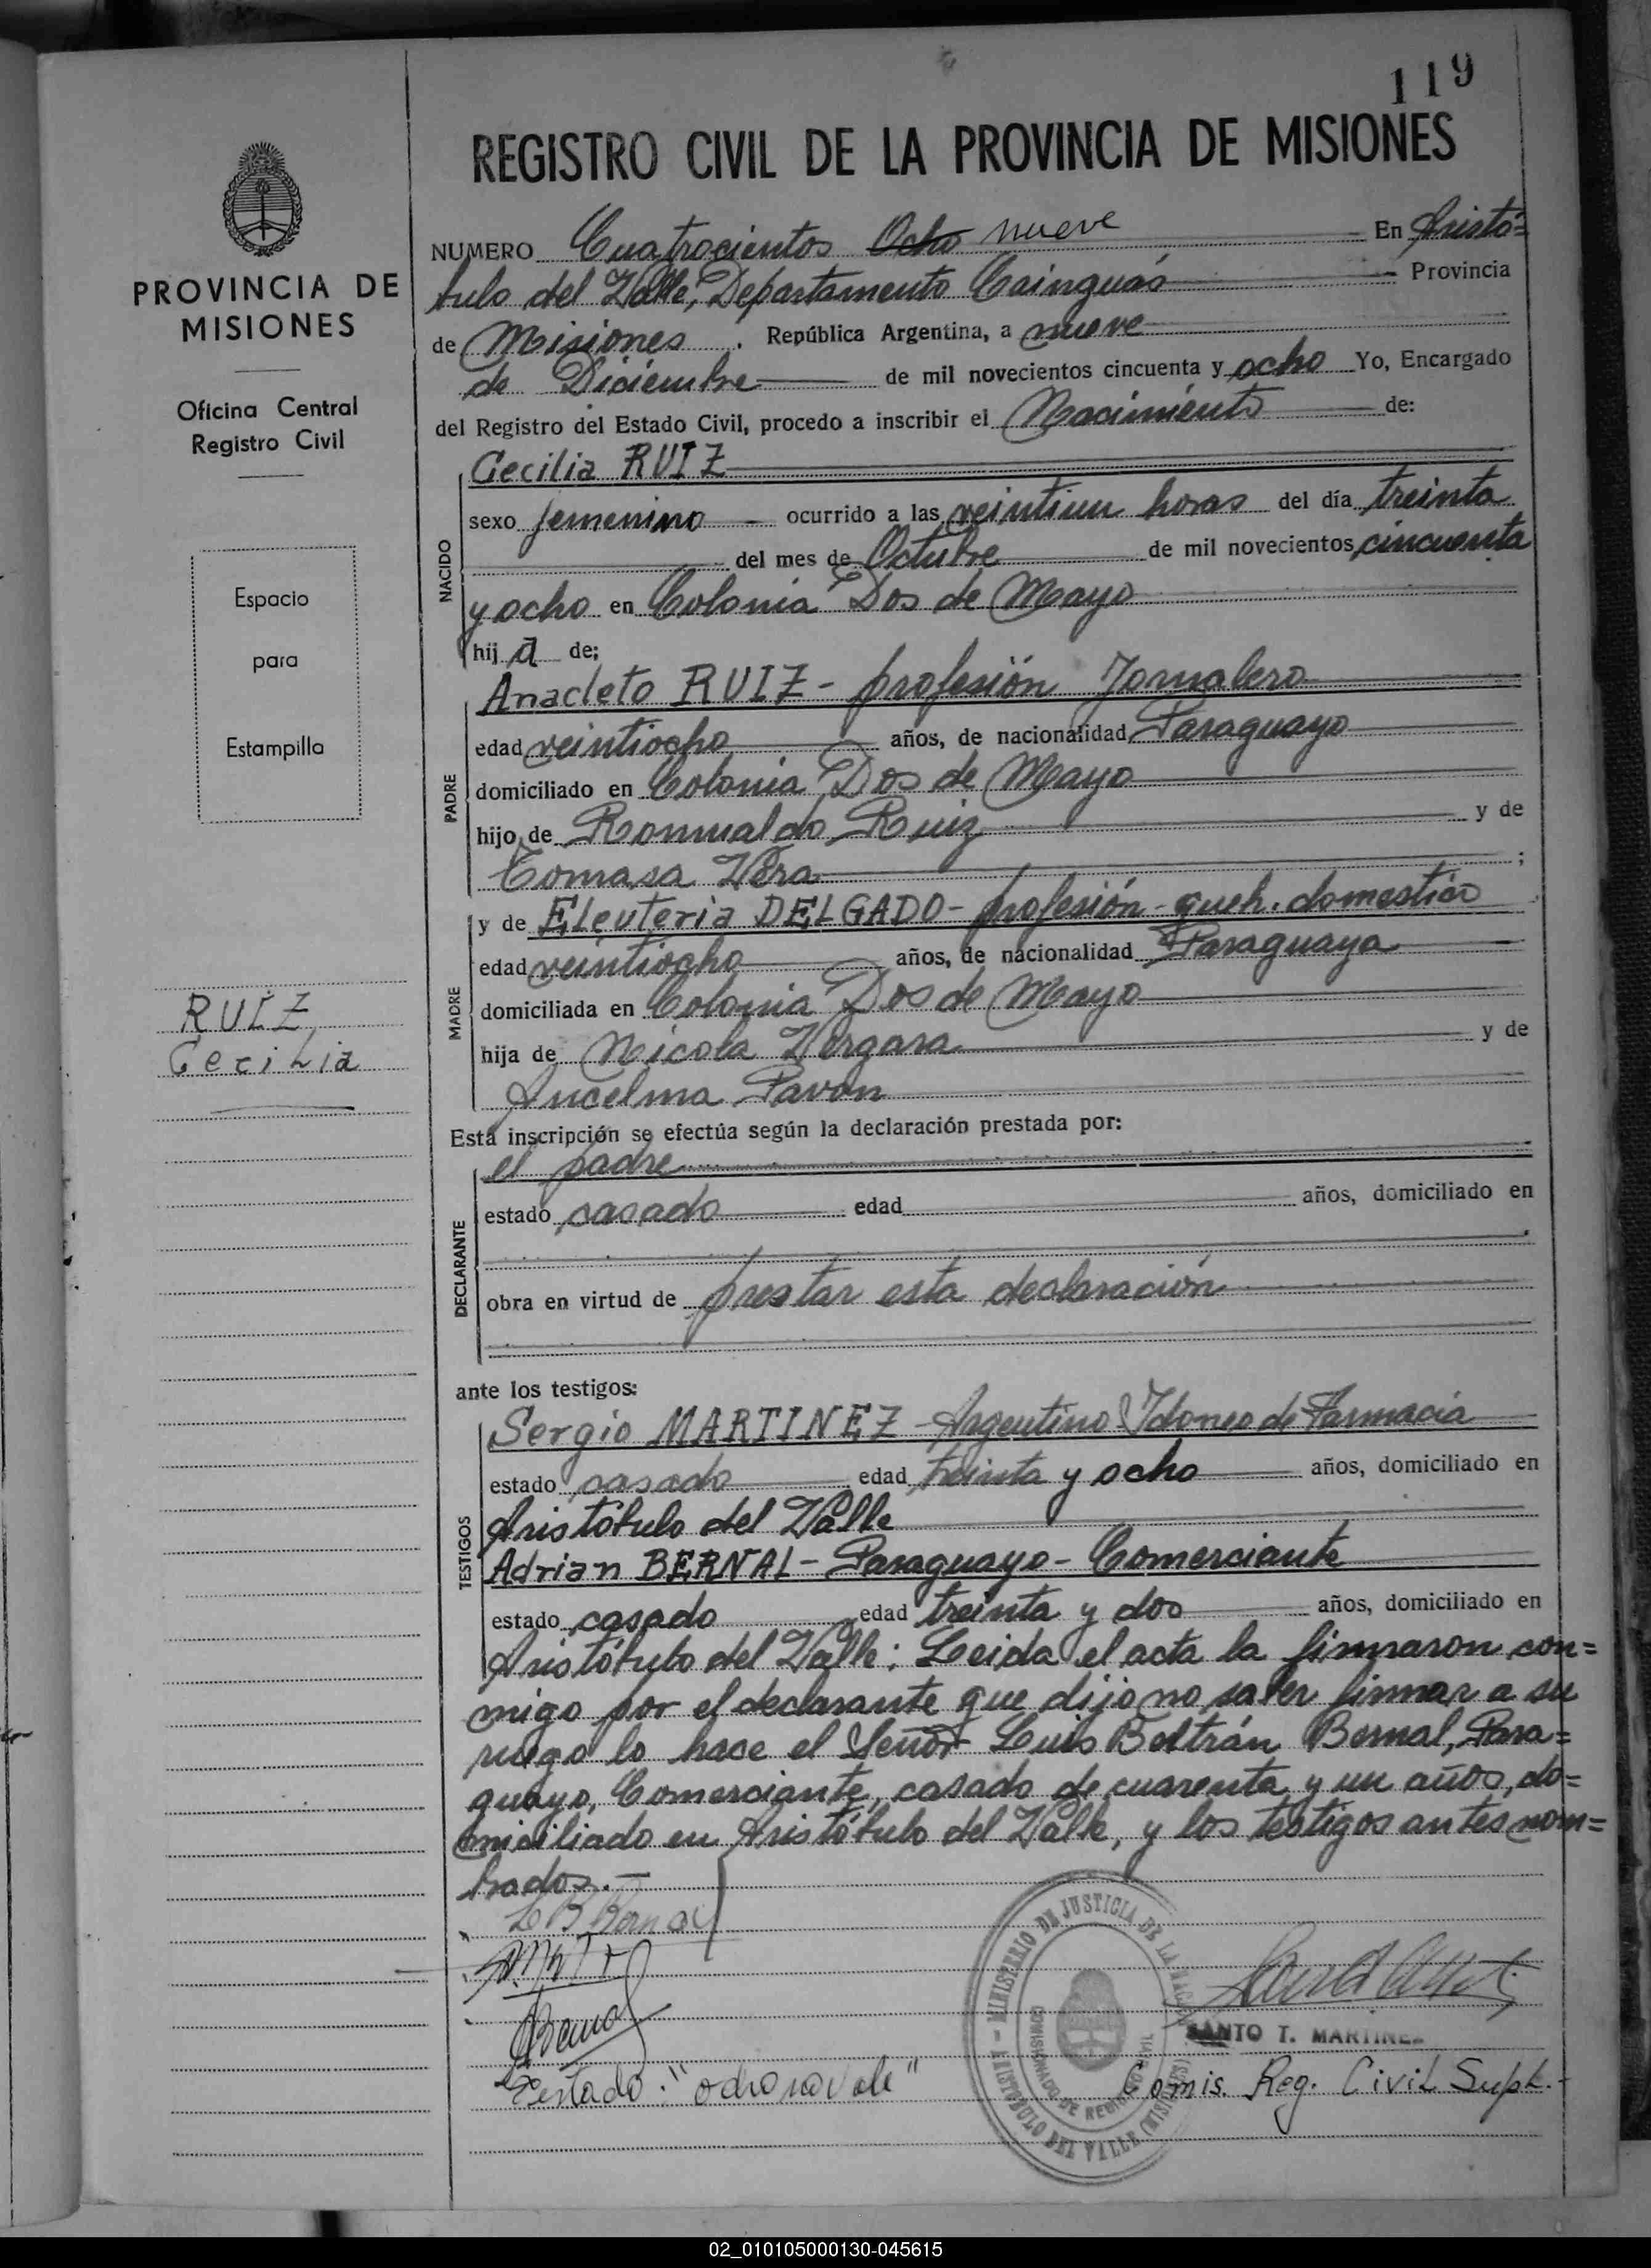 119
REGISTRO CIVIL DE LA PROVINCIA DE MISIONES
NUMERO Cuatrocientos Ocho nueve En Aristó=
bulo del Valle, Departamento Cainguás Provincia
de Misiones . República Argentina, a nueve
de Diciembre de mil novecientos cincuenta y ocho Yo, Encargado
del Registro del Estado Civil, procedo a inscribir el Nacimiento de:
NACIDO
Cecilia RUIZ
sexo femenino ocurrido a las veintiun horas del día treinta
del mes de Octubre de mil novecientos cincuenta
y ocho en Colonia Dos de Mayo
hij a de;
PADRE
Anacleto RUIZ - profesión Jornalero
edad veintiocho años, de nacionalidad Paraguayo
domiciliado en Colonia Dos de Mayo
hijo de Romualdo Ruiz y de
Tomasa Vera ;
MADRE
y de Eleuteria DELGADO - profesión - queh. domestico
edad veintiocho años, de nacionalidad Paraguaya
domiciliada en Colonia Dos de Mayo
hija de Nicola Vergara y de
Ancelma Pavon
Esta inscripción se efectúa según la declaración prestada por:
DECLARANTE
el padre
estado casado edad años, domiciliado en
obra en virtud de prestar esta declaración
ante los testigos:
TESTIGOS
Sergio MARTINEZ - Argentino Idoneo de Farmacia
estado casado edad treinta y ocho años, domiciliado en
Aristóbulo del Valle
Adrian BERNAL - Paraguayo - Comerciante
estado casado edad treinta y dos años, domiciliado en
Aristóbulo del Valle; Leida el acta la firmaron con=
migo por el declarante que dijo no saber firmar a su
ruego lo hace el Señor Luis Beltrán Bernal, Para=
guayo, Comerciante, casado de cuarenta y un años, do=
miciliado en Aristóbulo del Valle, y los testigos antes nom=
brados.-
L B Bernal
Bernal
Testado: "ocho no vale"
SANTO T. MARTINEZ
Comis. Reg. Civil Supl.
MINISTERIO DE JUSTICIA DE LA NACION
ARISTOBULO DEL VALLE (MISIONES)
PROVINCIA DE
MISIONES
Oficina Central
Registro Civil
Espacio
para
Estampilla
RUIZ,
Cecilia
02_010105000130-045615